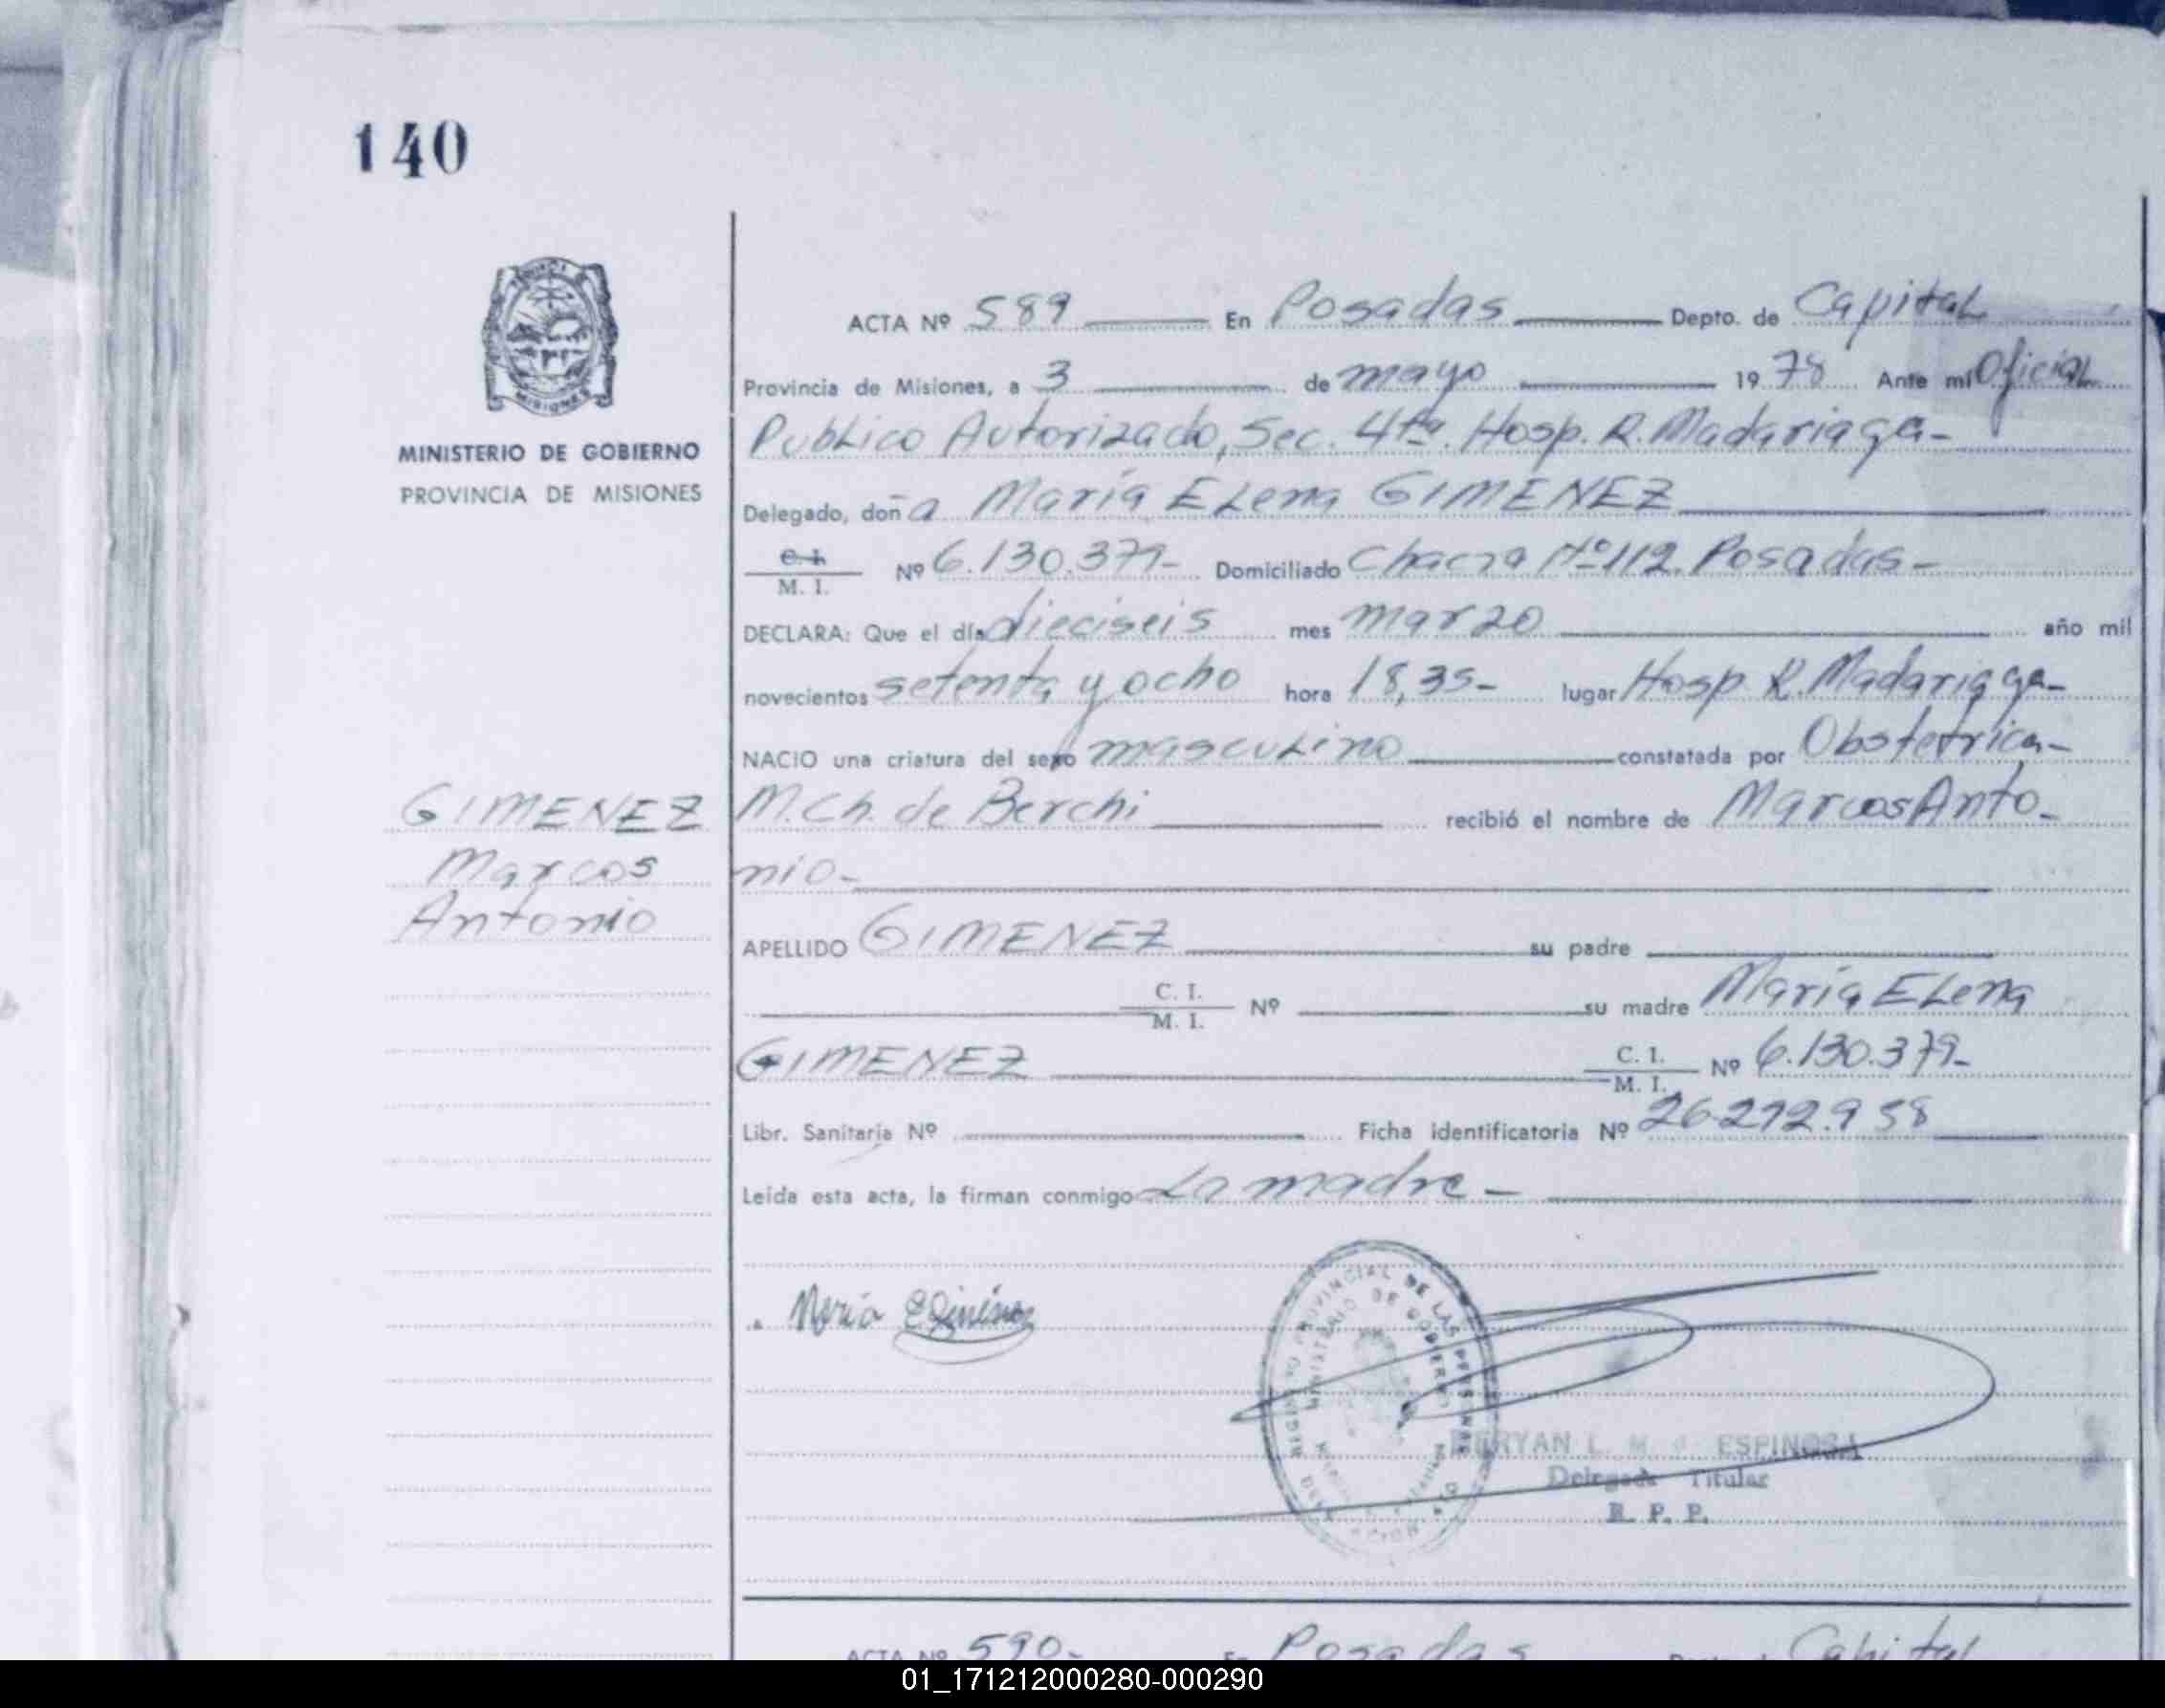 140
MISIONES
MINISTERIO DE GOBIERNO
PROVINCIA DE MISIONES
ACTA Nº 589 En Posadas Depto. de Capital
Provincia de Misiones, a 3 de mayo 1978 Ante mi Oficial
Publico Autorizado, Sec. 4ta. Hosp. R. Madariaga-
Delegado, doña María Elena GIMENEZ
C. I.
M. I. Nº 6.130.379- Domiciliado Chacra Nº 112. Posadas-
DECLARA: Que el día dieciseis mes marzo año mil
novecientos setenta y ocho hora 18,35- lugar Hosp R. Madariaga-
NACIO una criatura del sexo masculino constatada por Obstetrica-
GIMENEZ M.Ch. de Berchi recibió el nombre de Marcos Anto-
Marcos nio-
Antonio
APELLIDO GIMENEZ su padre
C. I.
M. I. Nº su madre María Elena
GIMENEZ C. I.
M. I. Nº 6.130.379-
Libr. Sanitaria Nº Ficha identificatoria Nº 26.272.958
Leída esta acta, la firman conmigo La madre-
María E Giménez
PROVINCIAL DE LAS PERSONAS
MINISTERIO DE GOBIERNO
L. M. ESPINOSA
Delegada Titular
R. P. P.
ACTA Nº 590- En Posadas Capital
01_171212000280-000290